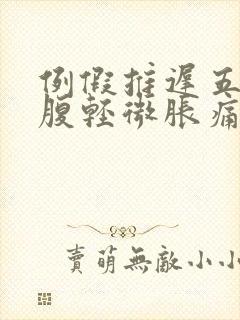 例假推遲五
腹輕微脹痛
賣萌無敵小小